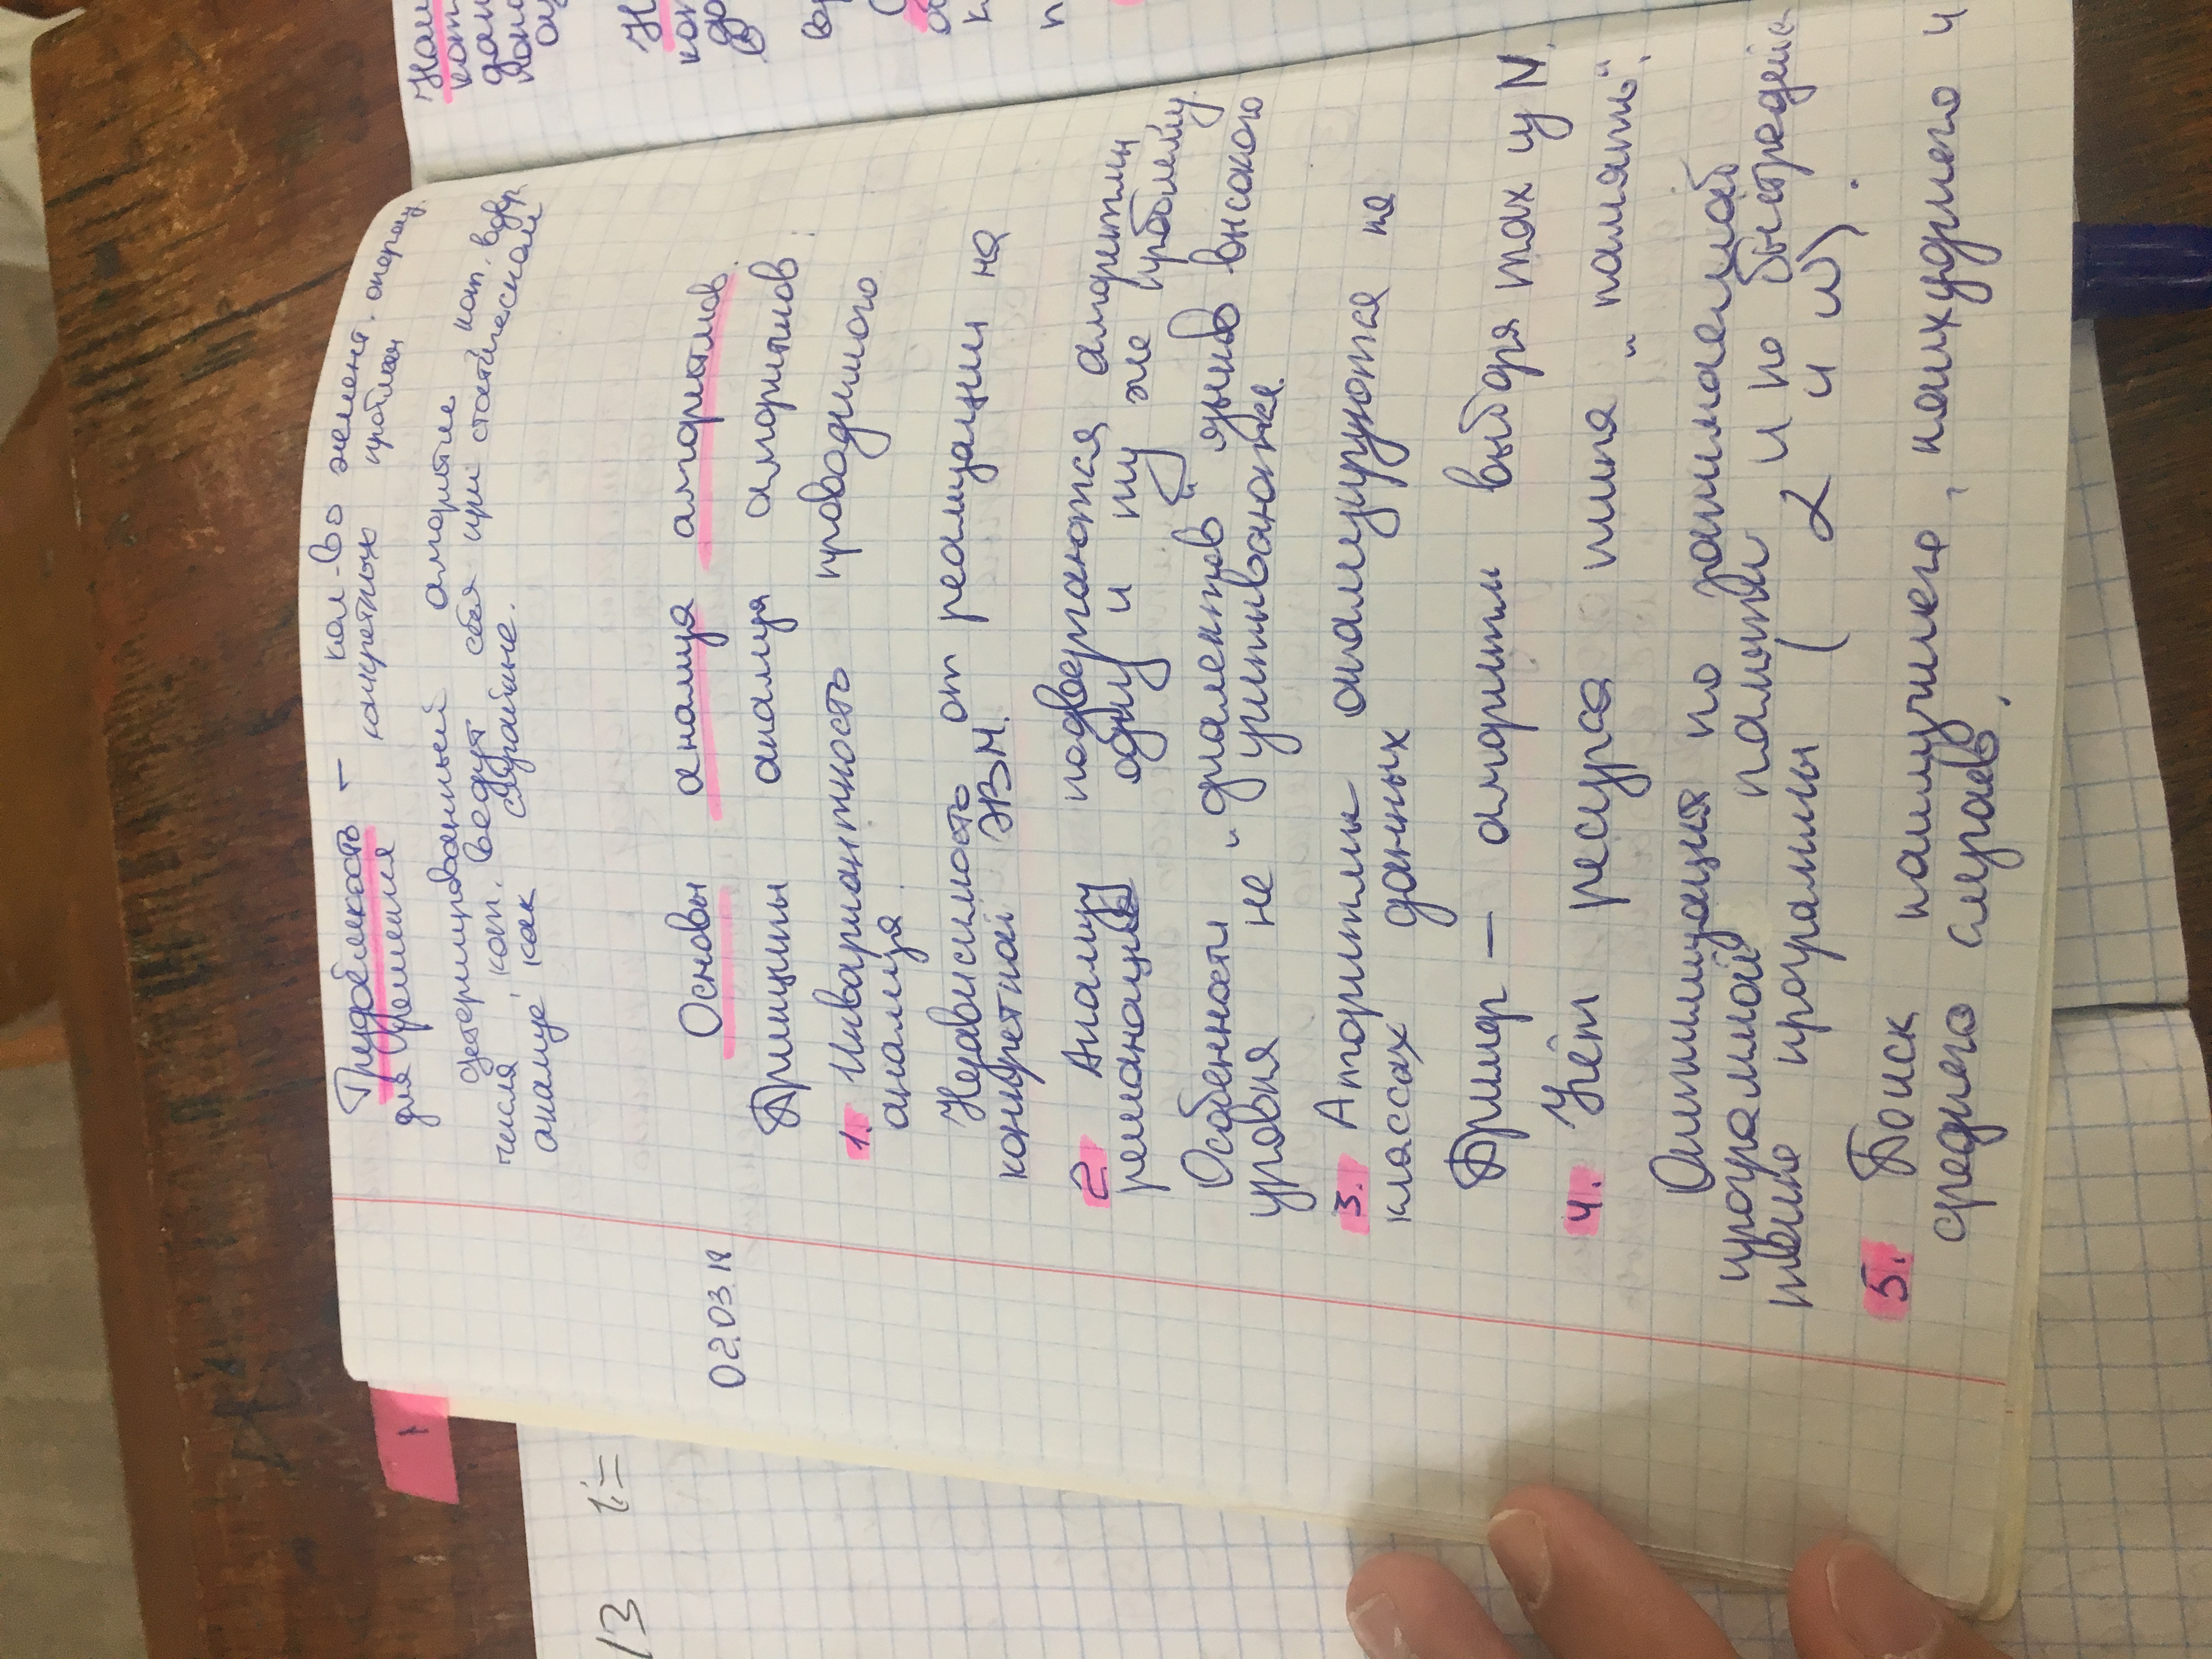 Трудоёмкость — кол-во элемент. операц.
для решения конкретных проблем
детерминированный алгоритм, кот.
числа, кот. ведут себя при статическом
анализе как случайные.
Основы анализа алгоритмов.
02.03.18
Принципы анализа алгоритмов:
1. Инвариантность проводимого
анализа.
Независимость от реализации на
конкретной ЭВМ.
2. Анализу подвергаются алгоритмы,
одну и ту же проблему.
Особенности „диалектов" языков высокого
уровня не учитываются.
3. Алгоритмы анализируются на
классах данных
Пример — алгоритм выбора max из N.
4. Учёт ресурса типа „память".
Оптимизация по занимаемой
программой памяти и по быстродейс
программы ( α и ω).
5. Поиск наилучшего, наихудшего и
среднего случаев.
13 i:=
1